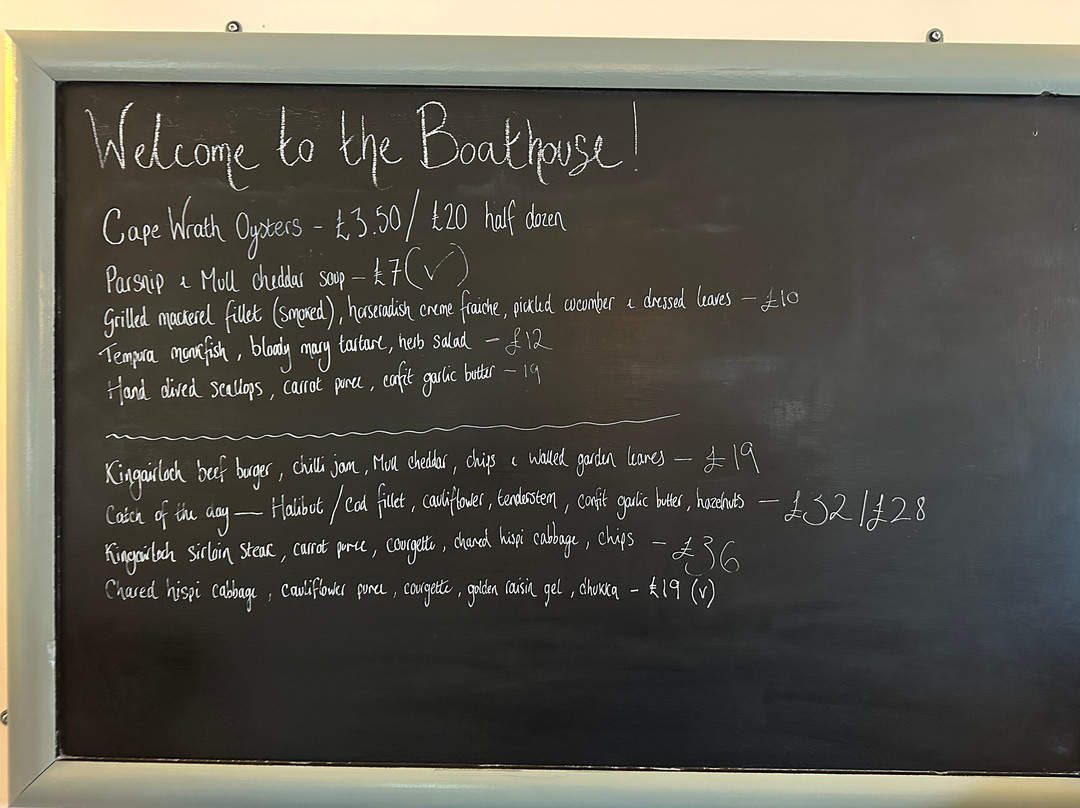 Welcome to the Boathouse!
Cape Wrath Oysters - £3.50/ £20 half dozen
Parsnip & Mull cheddar soup - £7 (v)
Grilled mackerel fillet (smoked), horseradish creme fraiche, pickled cucumber & dressed leaves - £10
Tempura monkfish, bloody mary tartare, herb salad - £12
Hand dived scallops, carrot puree, confit garlic butter - 19
Kingairloch beef burger, chilli jam, Mull cheddar, chips & walled garden leaves - £19
Catch of the day — Halibut / Cod fillet, cauliflower, tenderstem, confit garlic butter, hazelnuts - £32 / £28
Kingairloch sirloin steak, carrot puree, courgette, chared hispi cabbage, chips - £36
Chared hispi cabbage, cauliflower puree, courgette, golden raisin gel, dhukka - £19 (v)